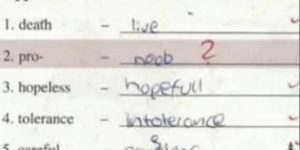 1. death - live
2. pro- - noob ?
3. hopeless - hopefull
4. tolerance - intolerance
5. careful